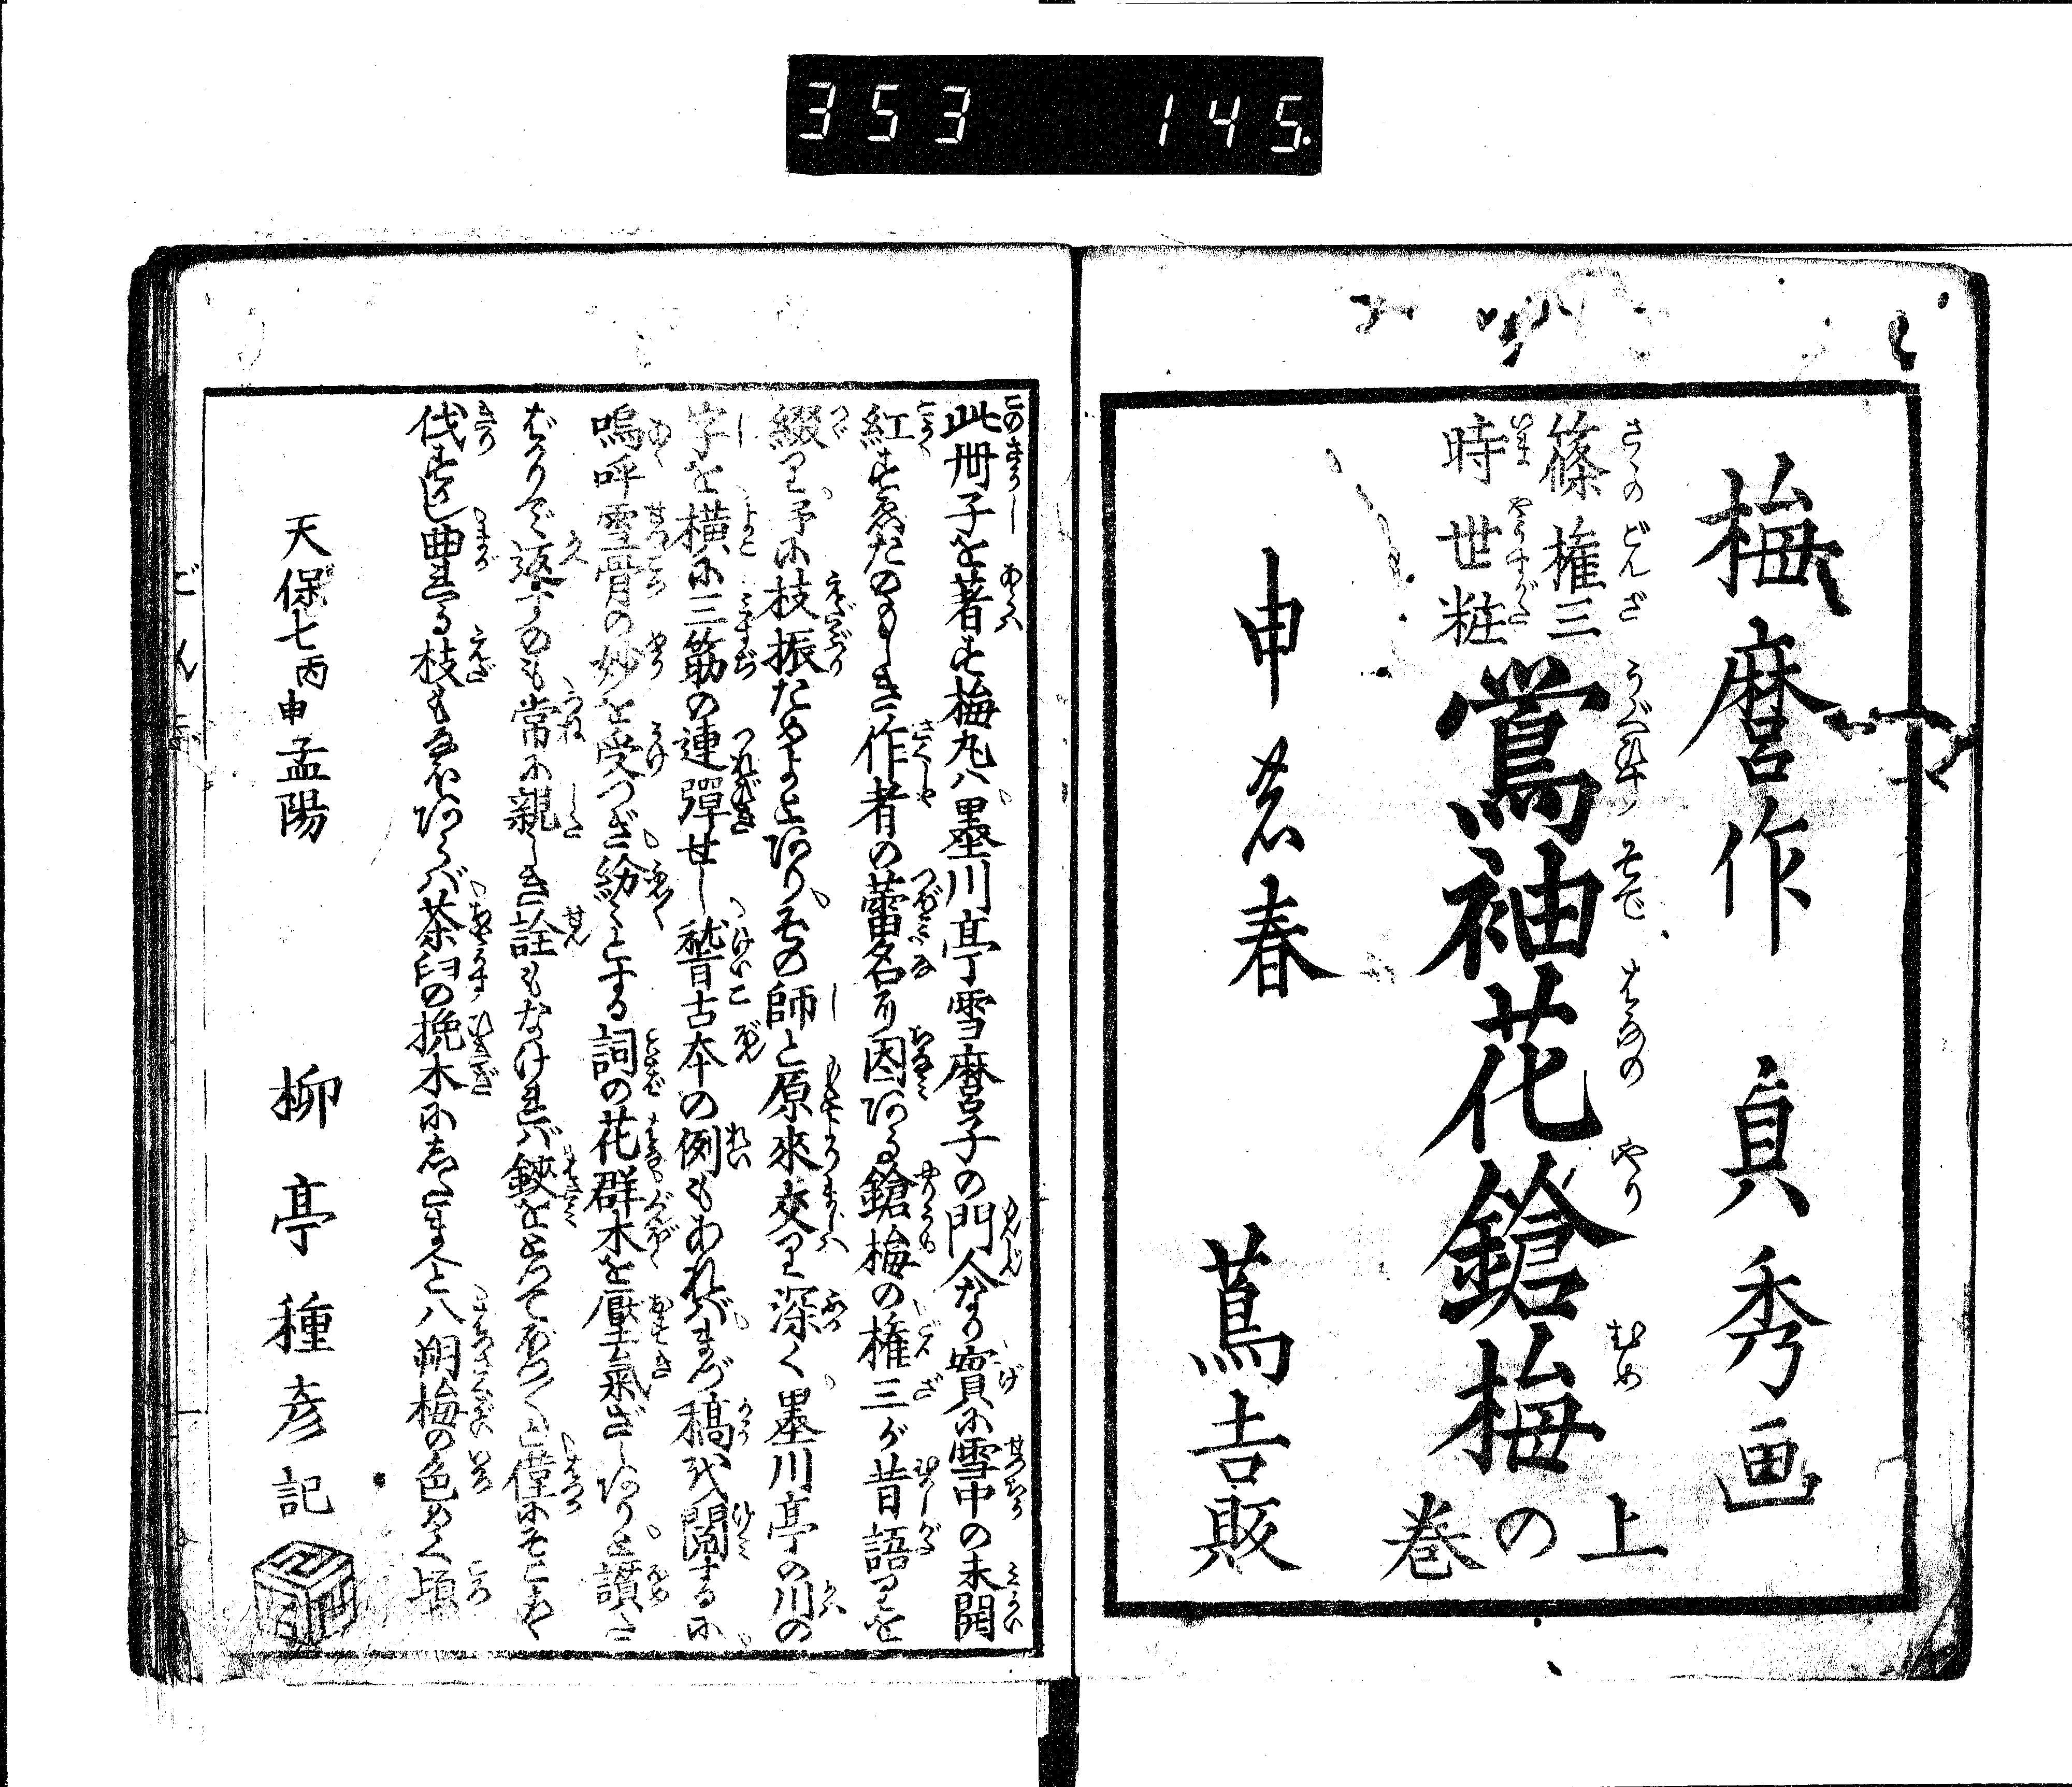 353 145
梅麿作 貞秀画
篠権三
時世粧
鶯袖花鎗梅
上の巻
申の春 蔦吉販
此冊子を著す梅丸ハ墨川亭雪麿子の門人なり實に雪中の未開
紅すゑたのもしき作者の蕾名に因ある鎗梅の権三が昔語りを
綴り予に枝振たわめよとありその師と原来交り深く墨川亭の川の
字を横に三筋の連彈せし稽古本の例もあればまづ稿を閲するに
嗚呼雪骨の妙を受つぎ紛〻とする詞の花群木を壓氣ざしありと讃さ
ばかりで返すのも常に親しき詮もなければ鋏をとつて
伐すかし曲れる枝もなほあらバ茶臼の挽木にしたまへと八朔梅の色めく頃
天保七丙申孟陽 柳亭種彦記